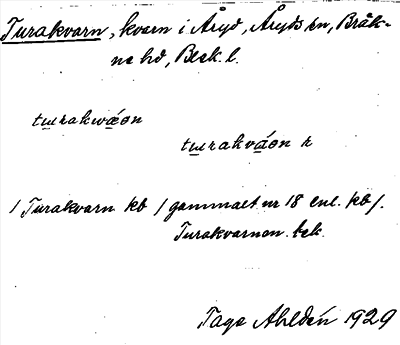 Turakvarn, kvarn i Åryd, Åryds sn, Bräk-
ne hd, Blek. l.
turakwáon
turakváon r
/ Turakvarn kb / gammalt nr 18 enl. kb /.
Turakvarnen. tek.
Tage Ahldén 1929